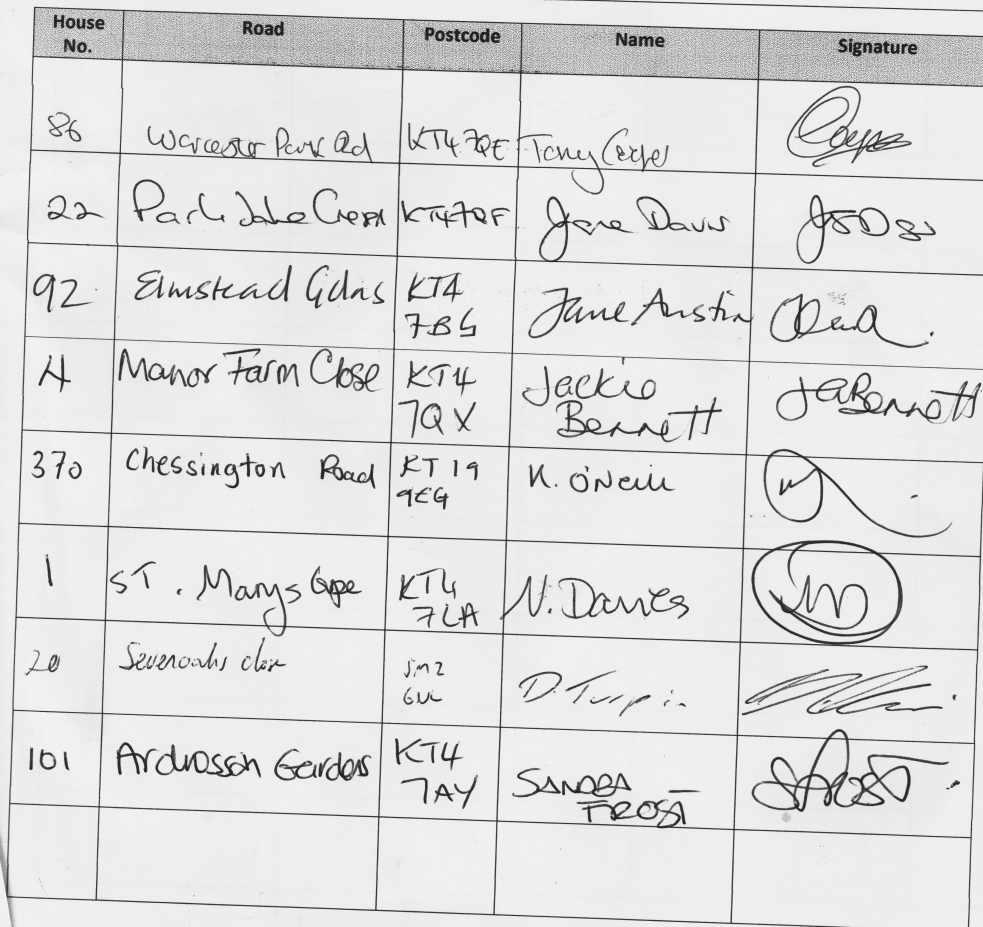 House No. Road Postcode Name Signature
86 Worcester Park Rd KT4 7QE Tony Cooper
22 Park KT4 7QF Jane Davis
92 Elmstead Gdns KT4 7BG Jane Austin
4 Manor Farm Close KT4 7QX Jackie Bennett JABennett
370 Chessington Road KT19 9EG K. O'Neill
1 ST. Marys KT4 7LA N. Davies
20 Sevenoaks close SM2 D. Turpin
101 Ardrossan Gardens KT4 7AY SANDRA FROST SFROST